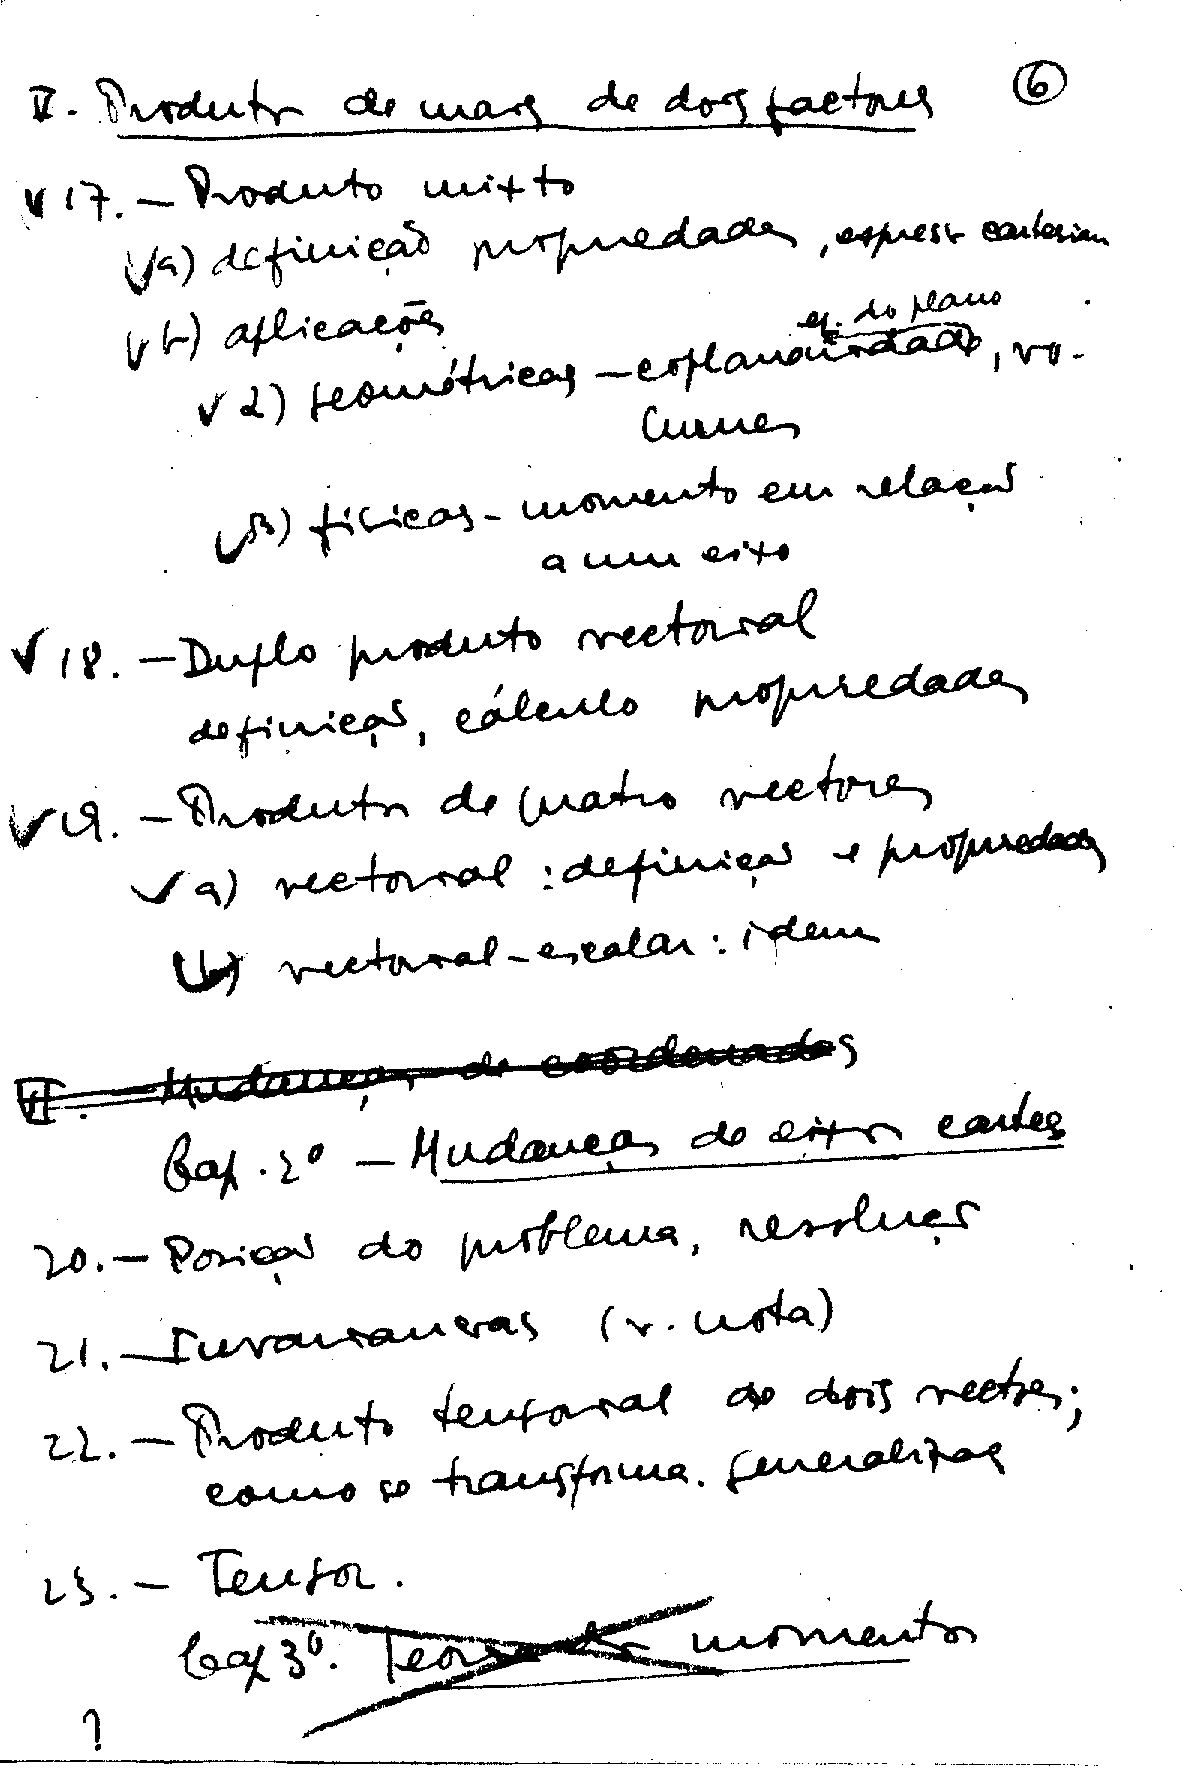 V. Produtos de mais de dois factores ⑥
v 17. — Produto mixto
v a) definição propriedades, express. cartesiana
v b) aplicações
eq. do plano
v α) geométricas — coplanaridade, vo-
lumes
v β) físicas - momento em relação
a um eixo
v 18. — Duplo produto vectorial
definição, cálculo propriedades
v 19. — Produtos de quatro vectores
v a) vectorial : definição e propriedades
v b) vectorial-escalar : idem
VI. — Mudanças de coordenadas
Cap. 2º — Mudanças de eixos cartes
20. — Posição do problema, resolução
21. — Invariancias (v. nota)
22. — Produto tensorial de dois vectores;
como se transforma. Generalizaç
23. — Tensor.
Cap 3º. Teoria dos momentos
?